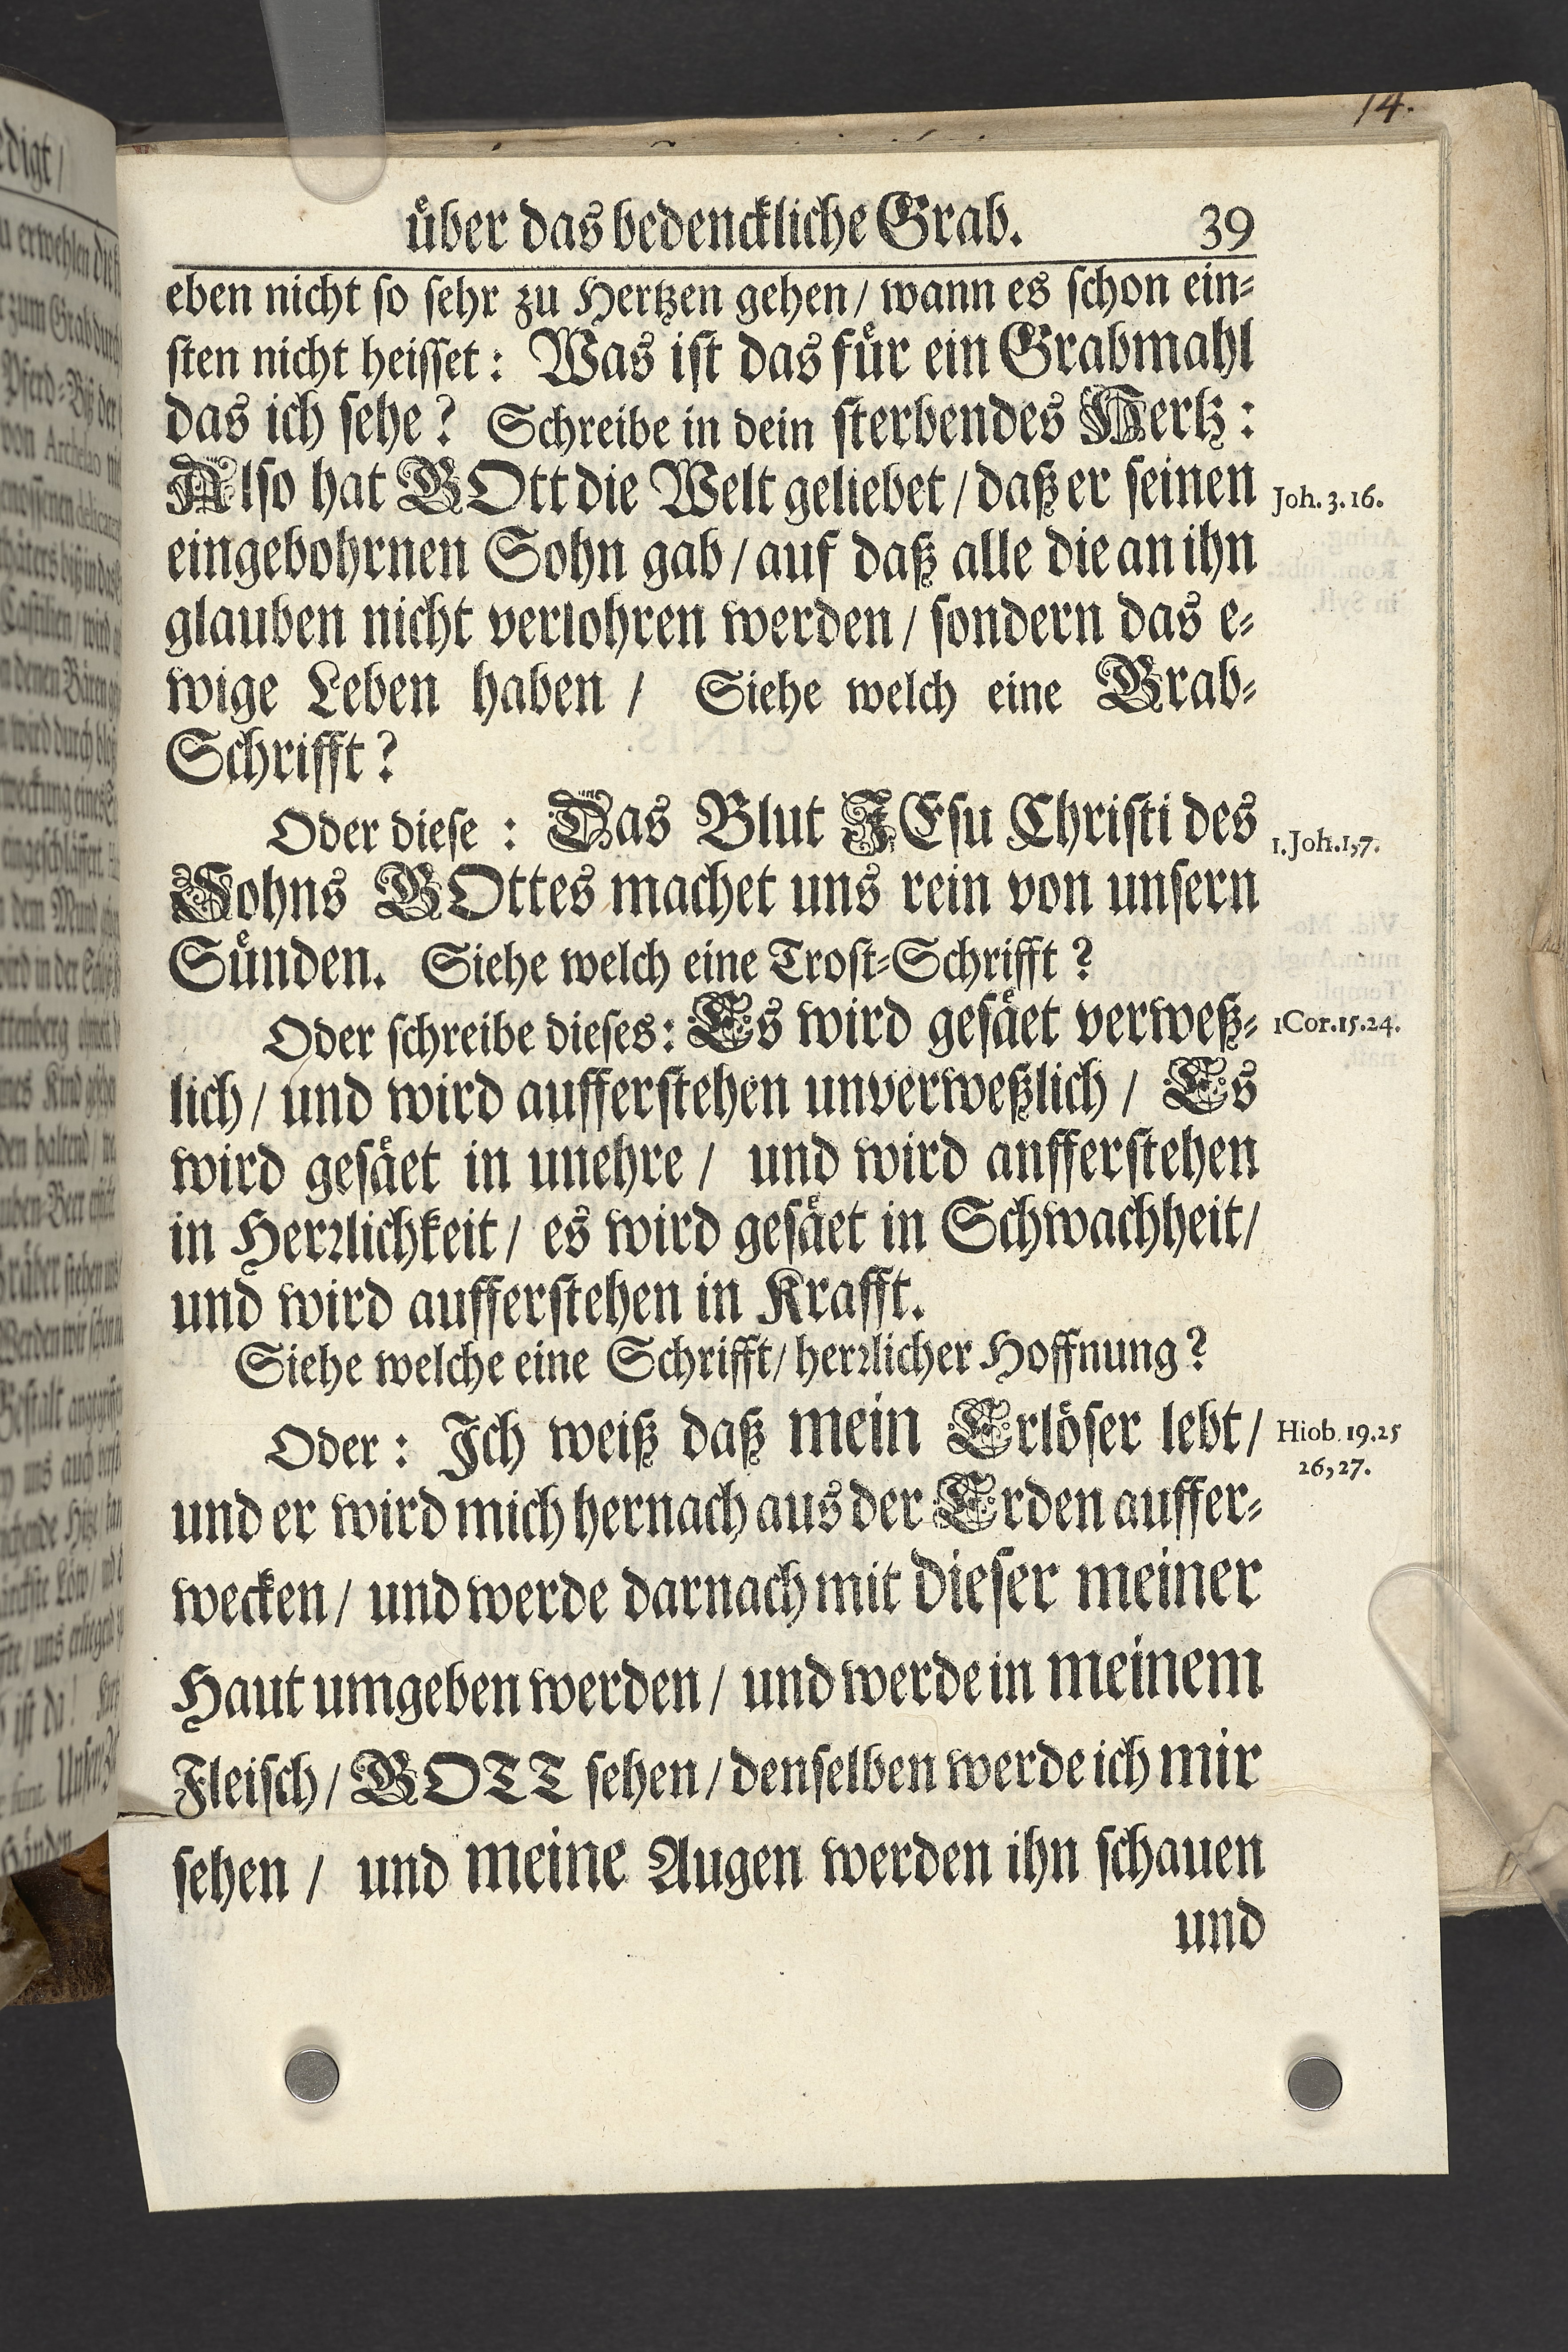 14.
über das bedenckliche Grab. 39
eben nicht so sehr zu Hertzen gehen / wann es schon ein-
sten nicht heisset: Was ist das für ein Grabmahl
das ich sehe? Schreibe in dein sterbendes Hertz:
Also hat GOtt die Welt geliebet / daß er seinen
Joh. 3. 16.
eingebohrnen Sohn gab / auf daß alle die an ihn
glauben nicht verlohren werden / sondern das e-
wige Leben haben / Siehe welch eine Grab-
Schrifft?
Oder diese : Das Blut JEsu Christi des
1. Joh. 1, 7.
Sohns GOttes machet uns rein von unsern
Sünden. Siehe welch eine Trost-Schrifft ?
Oder schreibe dieses: Es wird gesäet verweß-
1 Cor. 15. 24.
lich / und wird aufferstehen unverweßlich / Es
wird gesäet in unehre / und wird anfferstehen
in Herrlichkeit / es wird gesäet in Schwachheit /
und wird aufferstehen in Krafft.
Siehe welche eine Schrifft / herrlicher Hoffnung?
Oder: Ich weiß daß mein Erlöser lebt /
Hiob. 19. 25
26, 27.
und er wird mich hernach aus der Erden auffer-
wecken / und werde darnach mit dieser meiner
Haut umgeben werden / und werde in meinem
Fleisch / GOTT sehen / denselben werde ich mir
sehen / und meine Augen werden ihn schauen
und